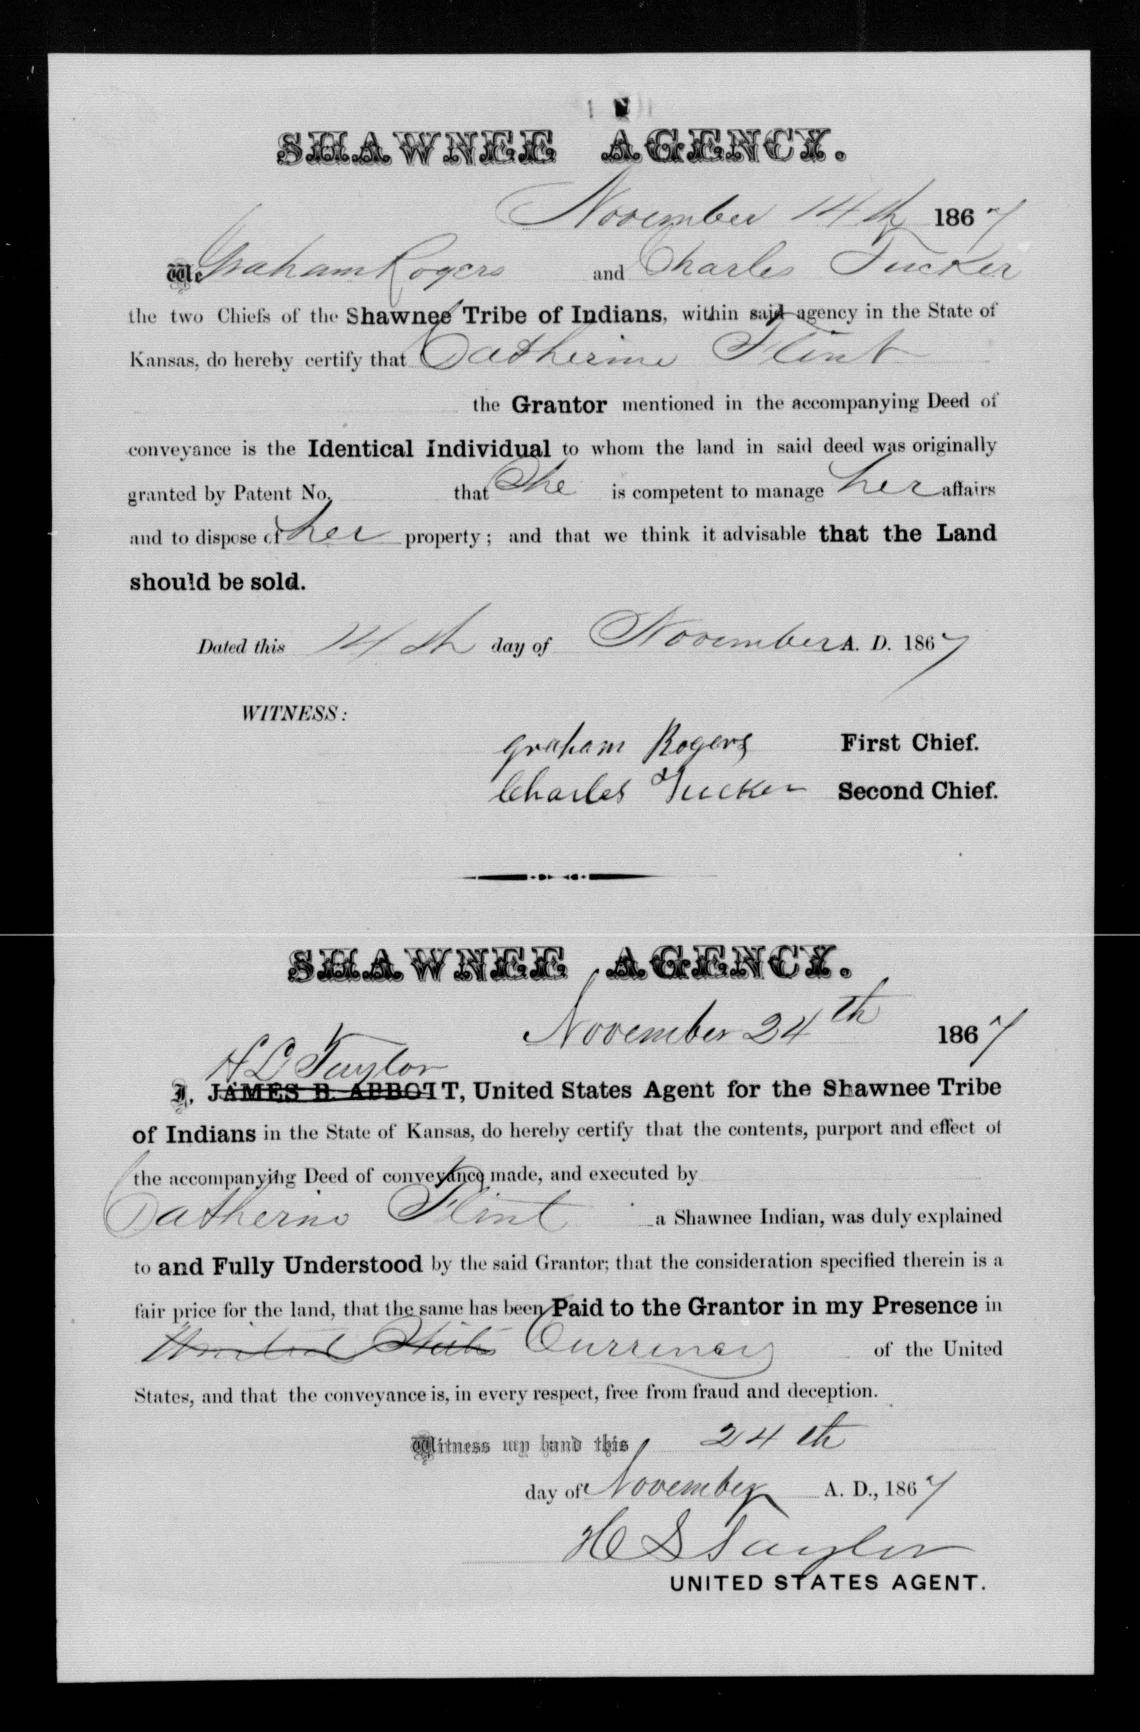 SHAWNEE AGENCY.
November 14th 1867
We Graham Rogers and Charles Tucker
the two Chiefs of the Shawnee Tribe of Indians, within said agency in the State of
Kansas, do hereby certify that Catherine Flint
the Grantor mentioned in the accompanying Deed of
conveyance is the Identical Individual to whom the land in said deed was originally
granted by Patent No. that She is competent to manage her affairs
and to dispose of her property; and that we think it advisable that the Land
should be sold.
Dated this 14th day of November A. D. 1867
WITNESS:
Graham Rogers First Chief.
Charles Tucker Second Chief.
SHAWNEE AGENCY.
November 24th 1867
Taylor
I, JAMES B. ABBOTT, United States Agent for the Shawnee Tribe
of Indians in the State of Kansas, do hereby certify that the contents, purport and effect of
the accompanying Deed of conveyance made, and executed by
Catherine Flint a Shawnee Indian, was duly explained
to and Fully Understood by the said Grantor; that the consideration specified therein is a
fair price for the land, that the same has been Paid to the Grantor in my Presence in
United States Currency of the United
States, and that the conveyance is, in every respect, free from fraud and deception.
Witness my hand this 24th
day of November A. D., 1867
H S Taylor
UNITED STATES AGENT.